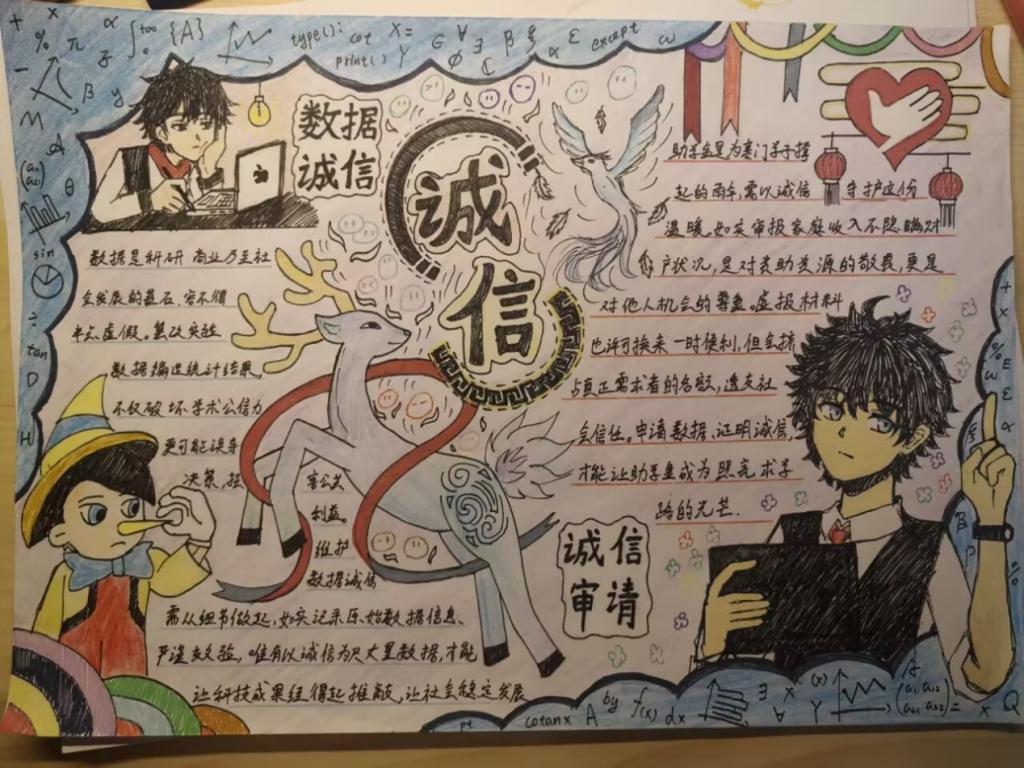 type(): cot X= Y ∈ ∀ ∃ β ξ α ε except ω
print() φ ₵
+ × % π ∫ {A}
数据
诚信
诚
信
数据是科研 商业乃至社
会发展的基石,容不得
半点虚假。篡改实验
数据编造统计结果,
不仅破坏学术公信力
更可能误导
决策,损 害公共
利益。
维护
数据诚信
需从细节做起,如实记录原始数据信息、
严谨求验,唯有以诚信为尺丈量数据,才能
让科技成果经得起推敲,让社会稳定发展
助学金是为寒门学子撑
起的雨伞,需以诚信 守护这份
温暖。如实审报家庭收入不隐瞒财
产状况,是对资助资源的敬畏,更是
对他人机会的尊重。虚报材料
也许可换来一时便利,但会挤
占真正需求者的名额,透支社
会信任。申请数据,证明诚信,
才能让助学金成为照亮求学
路的光芒.
诚信
审请
sin
÷
tan
D
H
pt cotanx A by f(x) dx ∃ x ∀ (x) Y